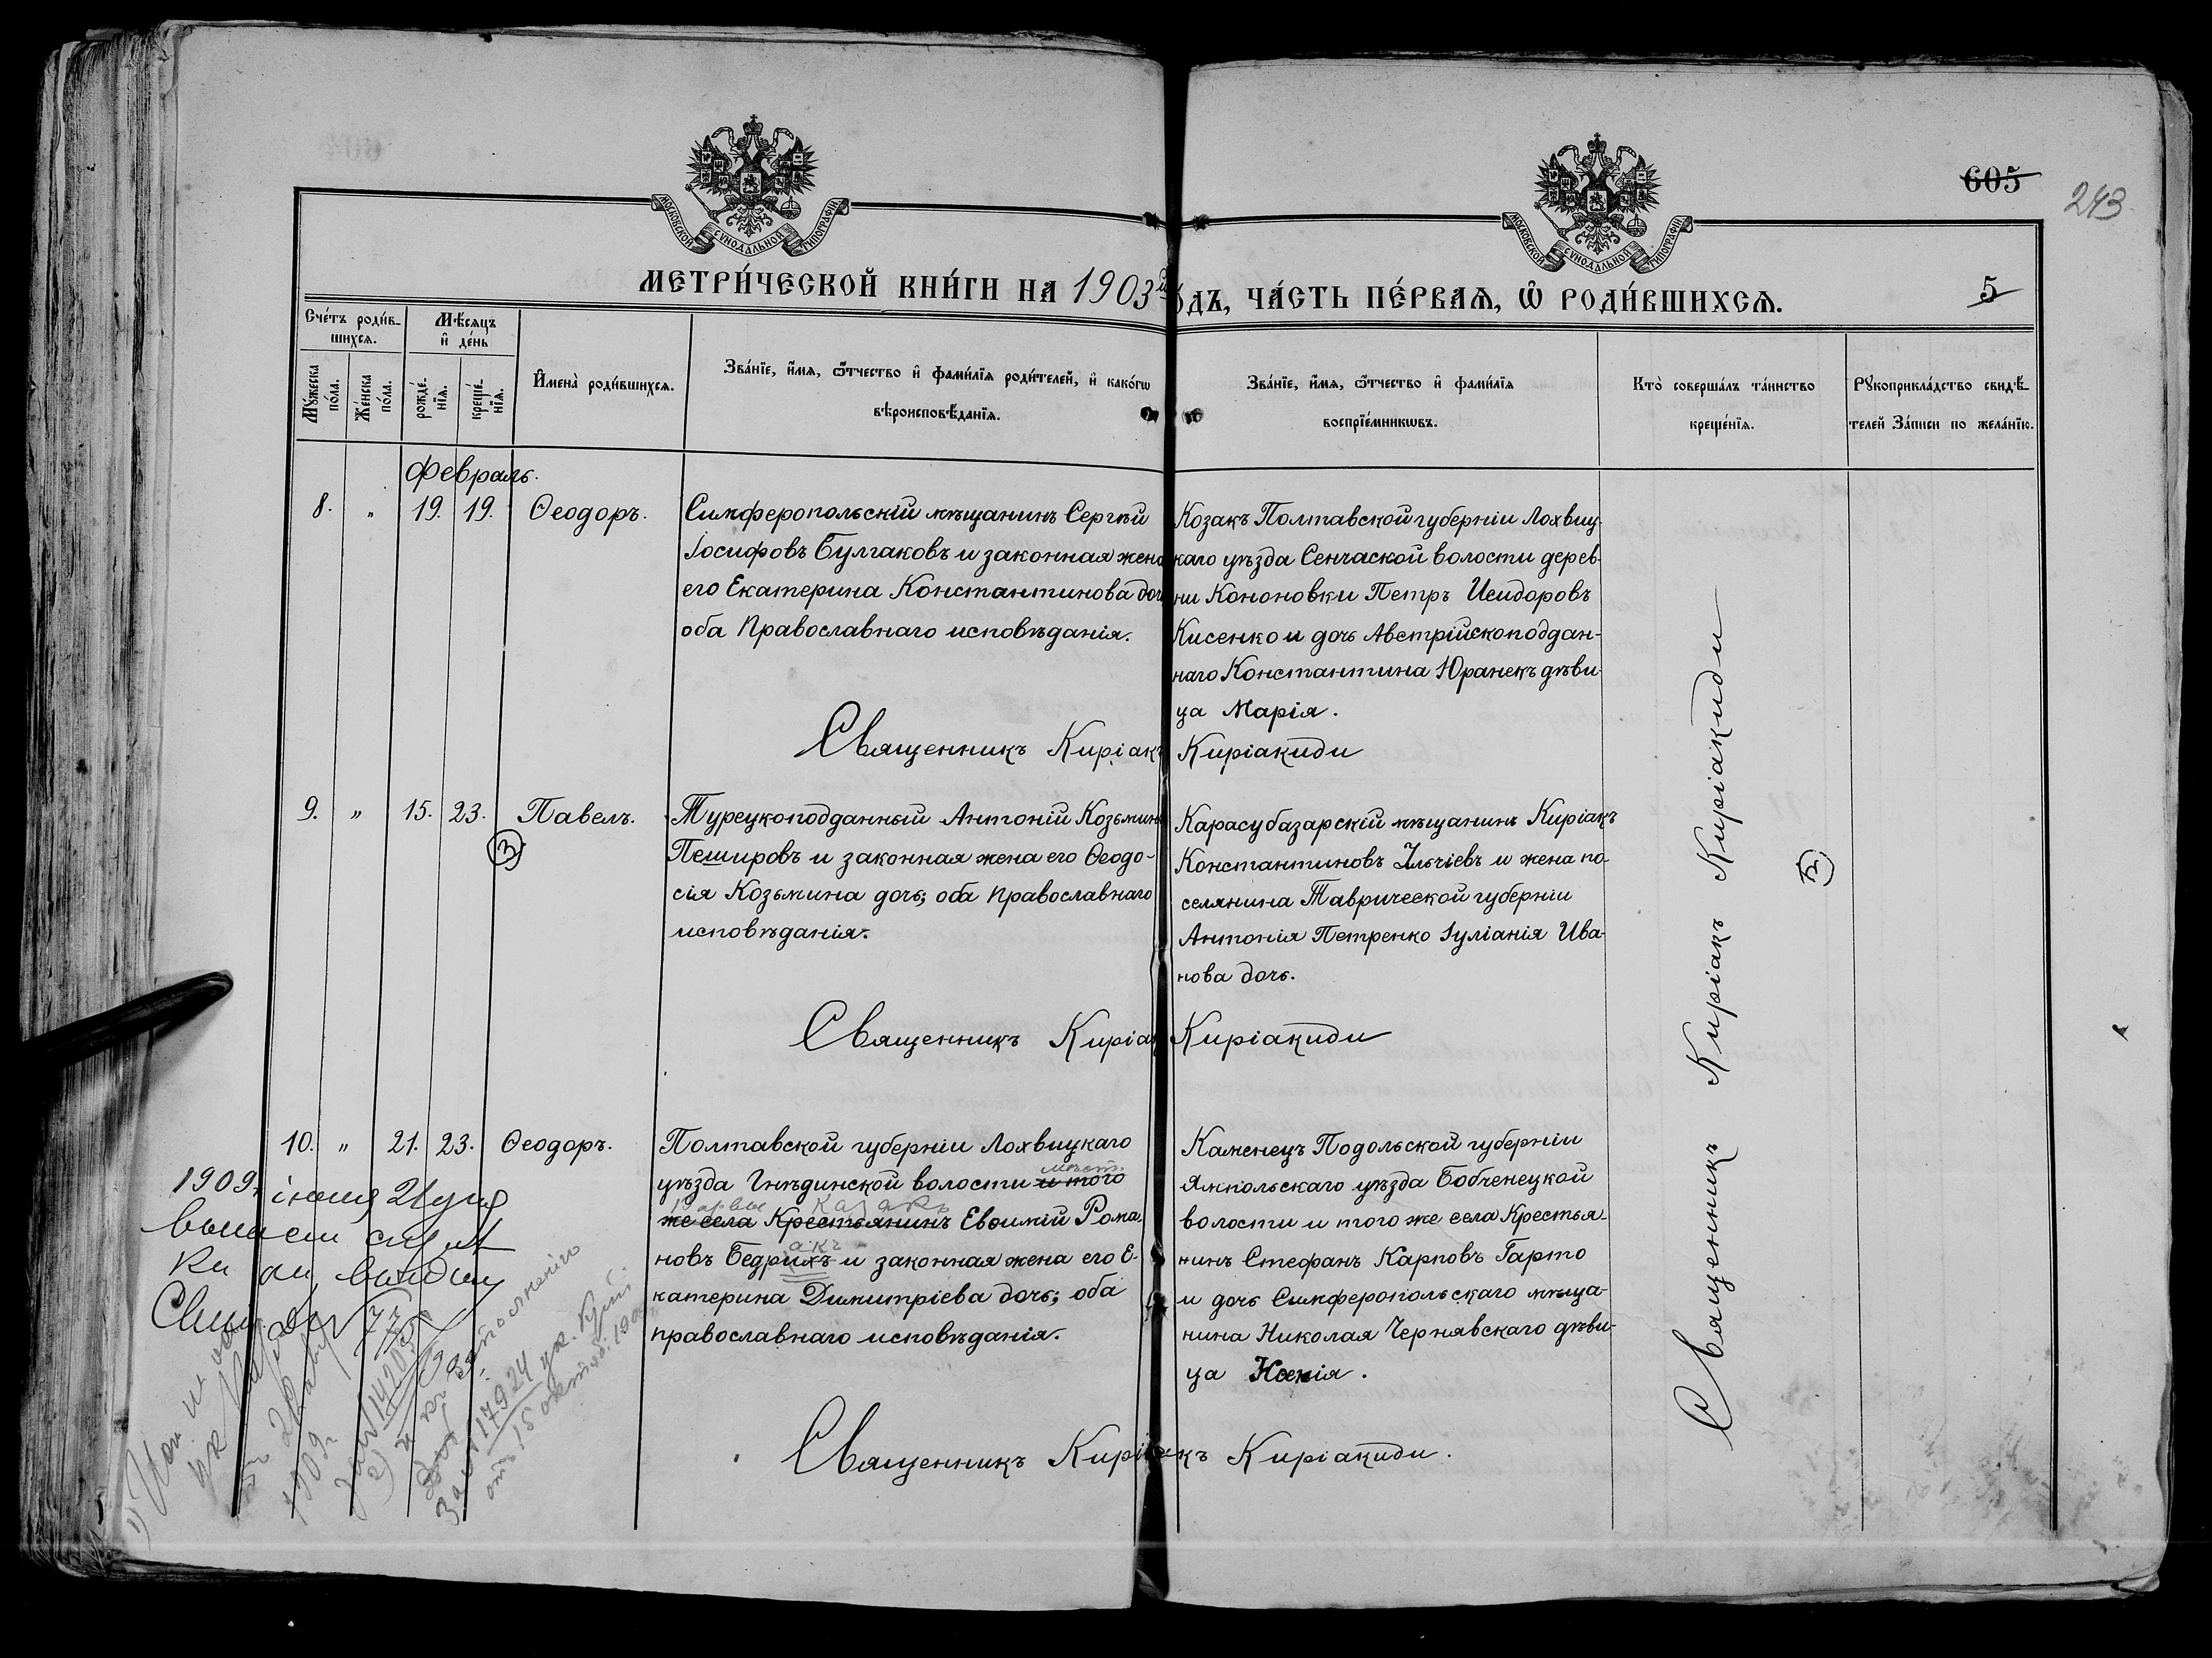 605
243
МОСКОВСКОЙ СѴНОДАЛЬНОЙ ТИПОГРАФІИ
МОСКОВСКОЙ СѴНОДАЛЬНОЙ ТИПОГРАФІИ
МЕТРИ́ЧЕСКОЙ КНИ́ГИ НА 1903й
ОДЪ, ЧА́СТЬ ПЕ́РВАѦ, Ѽ РОДИ́ВШИХСѦ.
5
Счéтъ роди́в-
шихсѧ.
Мѣ́сѧцъ
и҆ дéнь
Мꙋ́жеска
пóла.
Жéнска
пóла.
рождé-
нїѧ.
крещé-
нїѧ.
И҆менà роди́вшихсѧ.
Звáнїе, и҆́мѧ, ѻ҆́тчество и҆ фами́лїѧ роди́телей, и҆ какóгѡ
вѣроисповѣ́данїѧ.
Звáнїе, и҆́мѧ, ѻ҆́тчество и҆ фами́лїѧ
воспрїéмникѡвъ.
Ктò совершáлъ тáинство
крещéнїѧ.
Рꙋкоприклáдство свидѣ́-
телей зáписи по желáнїю.
Февраль.
8. „ 19. 19. Ѳеодоръ.
Симферопольскій мѣщанинъ Сергѣй
Іосифовъ Булгаковъ и законная жена
его Екатерина Константинова доч
оба Православнаго исповѣданія.
Козакъ Полтавской губерніи Лохвиц-
каго уѣзда Сенчаской волости дерев-
ни Кононовки Петръ Исидоровъ
Кисенко и дочь Австрійскоподдан-
наго Константина Юранекъ дѣви-
ца Марія.
Священникъ Киріакъ Киріакиди
9. „ 15. 23. Павелъ.
3
Турецкоподданный Антоній Козьмин
Пешировъ и законная жена его Ѳеодо-
сія Козьмина дочь; оба Православнаго
исповѣданія.
Карасубазарскій мѣщанинъ Киріакъ
Константиновъ Ильчіевъ и жена по-
селянина Таврической губерніи
Антонія Петренко Іуліанія Ива-
нова дочь.
Священникъ Киріак Киріакиди
10. „ 21. 23. Ѳеодоръ.
Полтавской губерніи Лохвицкаго
уѣзда Гнѣдинской волости и того
мѣст.
же села Крестьянинъ Евѳимій Рома-
казакъ
новъ Бедрихъ и законная жена его Е-
акъ
катерина Димитріева дочь; оба
православнаго исповѣданія.
Каменецъ Подольской губерніи
Ямпольскаго уѣзда Бобченецкой
волости и того же села Крестья-
нинъ Стефанъ Карповъ Гарто
и дочь Симферопольскаго мѣща-
нина Николая Чернявскаго дѣви-
ца Ксенія.
Священникъ Киріакъ Киріакиди.
Священникъ Киріакъ Киріакиди
1909,
1)
1909г
14203
2)
17924 ук.
отъ 15 октяб.